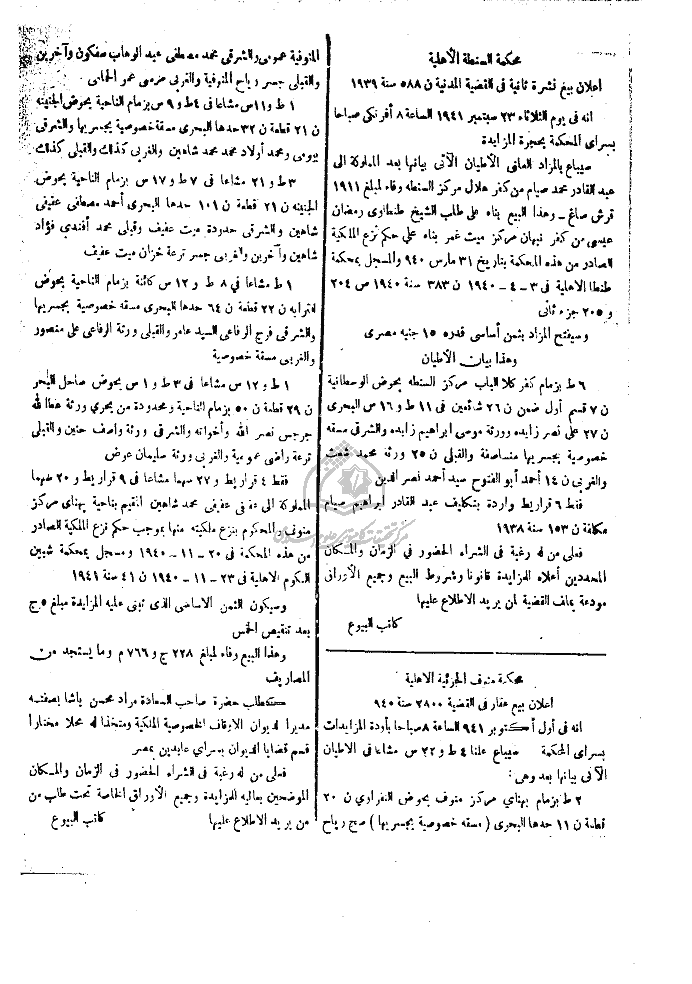 محكمة السنطة الأهلية
اعلان بيع نشرة ثانية فى القضية المدنية ن ٥٨٨ سنة ١٩٣٩
انه فى يوم الثلاثاء ٢٣ سبتمبر ١٩٤١ الساعة ٨ أفرنكى صباحا
بسراى المحكمة بحجرة المزايدة
سيباع بالمزاد العلنى الأطيان الآتى بيانها بعد المملوكة الى
عبد القادر محمد صيام من كفر هلال مركز السنطه وفاء لمبلغ ١٩١١
قرش صاغ ــ وهذا البيع بناء على طلب الشيخ طنطاوى رمضان
عيسى من كفر نبهان مركز ميت غمر بناء على حكم نزع الملكية
الصادر من هذه المحكمة بتاريخ ٣١ مارس ٩٤٠ والمسجل بمحكمة
طنطا الاهلية فى ٣ ــ ٤ ــ ١٩٤٠ ن ٣٨٣ سنة ١٩٤٠ ص ٢٠٤
و ٢٠٥ جزء ثانى
وسيفتح المزاد بثمن أساسى قدره ١٥ جنيه مصرى
وهذا بيان الأطيان
٦ ط بزمام كفر كلا الباب مركز السنطه بحوض الوسطانية
ن ٧ قسم أول ضمن ن ٢٦ شائعين فى ١١ ط و ١٦ س البحرى
ن ٢٧ على نصر زايده وورثة موسى ابراهيم زايده والشرقى مسقه
خصوصية بجسريها مناصفة والقبلى ن ٢٥ ورثة محمد شعت
والغربى ن ١٤ أحمد أبو الفتوح سيد أحمد نصر الدين
فقط ٦ قراريط واردة بتكليف عبد القادر ابراهيم صيام
مكلفة ن ١٥٣ سنة ١٩٣٨
فعلى من له رغبة فى الشراء الحضور فى الزمان والمكان
المحددين أعلاه للمزايدة قانونا وشروط البيع وجميع الأوراق
مودعة بملف القضية لمن يريد الاطلاع عليها
كاتب البيوع
محكمة منوف الجزئية الاهلية
اعلان بيع عقار فى القضية ٢٨٠٠ سنة ٩٤٠
انه فى أول أكتوبر ٩٤١ الساعة ٨ صباحا بأودة المزايدات
بسراى المحكمة سيباع علنا ٤ ط و ٢٢ س مشاعا فى الاطيان
الآتى بيانها بعد وهى :
٢ ط بزمام بهناى مركز منوف بحوض النفراوى ن ٢٠
قطعة ن ١١ حدها البحرى ( مسقه خصوصية بجسريها ) صح رياح
المنوفية عمومى والشرقى محمد مصطفى عبد الوهاب صفكون وآخرين
والقبلى جسر رياح المنوفية والغربى مرسى عمر الحمابى
١ ط و ١١ س مشاعا فى ٤ ط و ٩ س بزمام الناحية بحوض الجنينه
ن ٢١ قطعة ن ٣٢ حدها البحرى مسقة خصوصية بجسريها والشرقى
بيومى ومحمد أولاد محمد محمد شاهين والغربى كذلك والقبلى كذلك
٣ ط و ٢١ مشاعا فى ٧ ط و ١٧ س بزمام الناحية بحوض
الجنينه ن ٢١ قطعة ن ١٠١ حدها البحرى أحمد مصطفى عفيفى
شاهين والشرقى حدودة ميت عفيف وقبلى محمد أفندى فؤاد
شاهين وآخرين والغربى جسر ترعة خزان ميت عفيف
١ ط مشاعا فى ٨ ط و ١٢ س كائنة بزمام الناحية بحوض
ن ٢٢ قطعة ن ٦٤ حدها البحرى مسقه خصوصية بجسريها
والشرقى فرج الرفاعى السيد عامر والقبلى ورثة الرفاعى على منصور
والغربى مسقة خصوصية
١ ط و ١٢ س مشاعا فى ٣ ط و ١ س بحوض ساحل البحر
ن ٢٩ قطعة ن ٥٠ بزمام الناحية ومحدودة من بحرى ورثة عطا الله
جرجس نصر الله وأخواته والشرقى ورثة واصف حنين والقبلى
ترعة راضى عمومية والغربى ورثة سليمان عوض
فقط ٤ قراريط و ٢٧ سهما مشاعا فى ٩ قراريط و ٢٠ سهما
المملوكة الى عفيفى محمد شاهين المقيم بناحية بهناى مركز
منوف والمحكوم بنزع ملكيته منها بموجب حكم نزع الملكية الصادر
من هذه المحكمة فى ٢٠ ــ ١١ ــ ١٩٤٠ ومسجل بمحكمة شبين
الكوم الاهلية فى ٢٣ ــ ١١ ــ ١٩٤٠ ن ٤١ سنة ١٩٤١
وسيكون الثمن الاساسى الذى تبنى عليه المزايدة مبلغ ٥ ج
بعد تنقيص الخمس
وهذا البيع وفاء لمبلغ ٢٢٨ ج و ٧٦٦ م وما يستجد من
المصاريف
كطلب حضرة صاحب السعادة مراد محسن باشا بصفته
مديرا لديوان الاوقاف الخصوصية الملكية ومتخذا له محلا مختارا
قسم قضايا الديوان بسراى عابدين بمصر
فعلى من له رغبة فى الشراء الحضور فى الزمان والمكان
الموضحين بعاليه للمزايدة وجميع الأوراق الخاصة تحت طلب من
من يريد الاطلاع عليها
كاتب البيوع